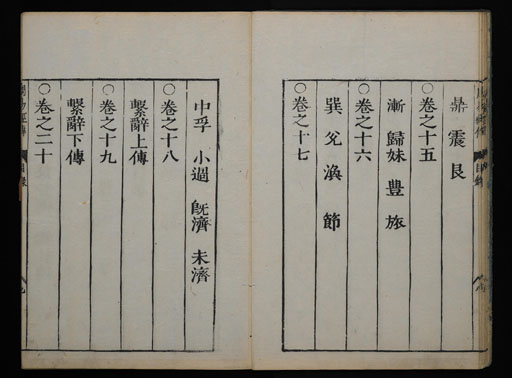 鼎 震 艮
○卷之十五
漸 歸妹 豐 旅
○卷之十六
巽 兌 渙 節
○卷之十七
中孚 小過 旣濟 未濟
○卷之十八
繫辭上傳
○卷之十九
繫辭下傳
○卷之二十